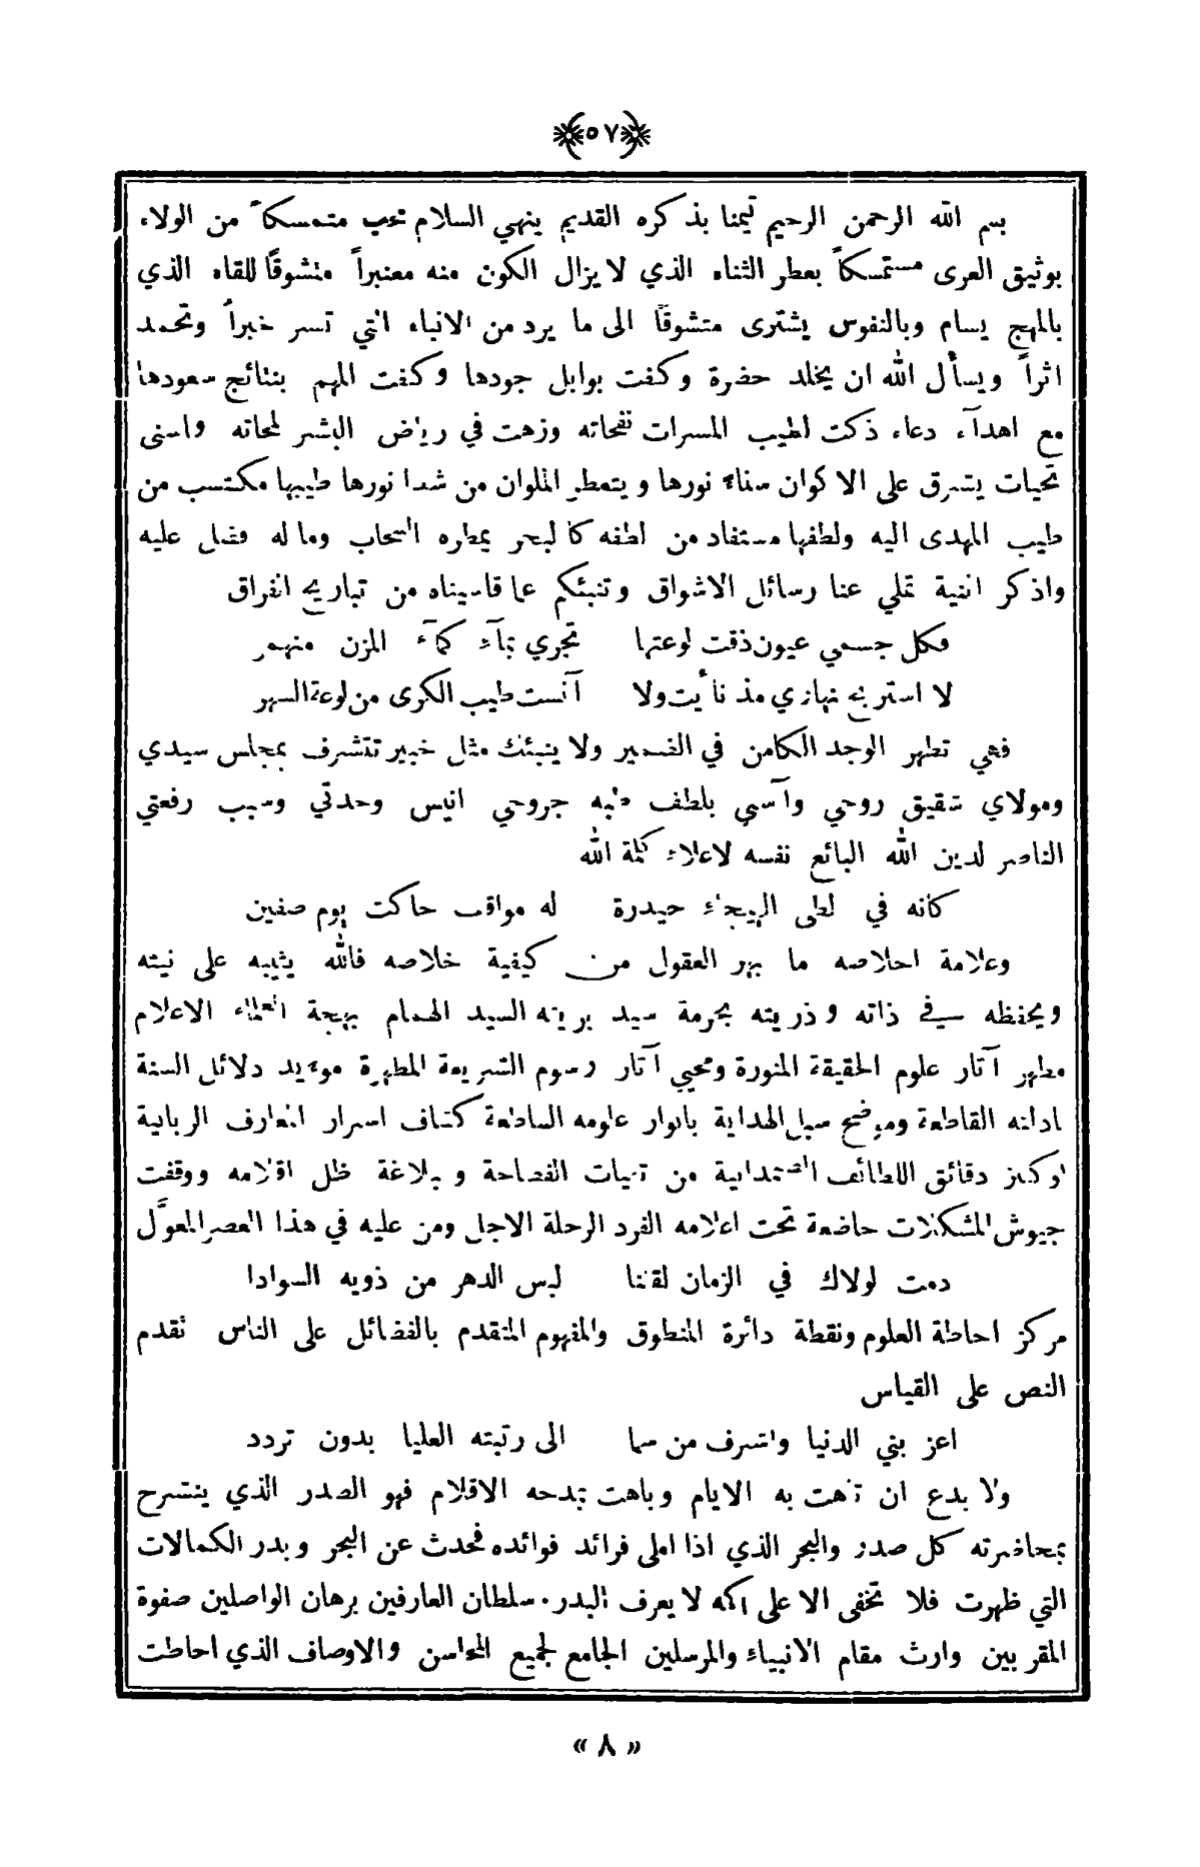 ٥٧
بسم الله الرحمن الرحيم تيمنا بذكره القديم ينهي السلام محب متمسكاً من الولاء
بوثيق العرى مستمسكاً بعطر الثناء الذي لا يزال الكون منه معنبراً متشوقاً للقاء الذي
بالمهج يسام وبالنفوس يشترى متشوقاً الى ما يرد من الانباء التي تسر خبراً وتحمد
اثراً ويسأل الله ان يخلد حضرة وكفت بوابل جودها وكفت المهم بنتائج سعودها
مع اهدآء دعاء ذكت لطيب المسرات نفحاته وزهت في رياض البشر لمحاته واسنى
تحيات يشرق على الاكوان سناء نورها ويتعطر الملوان من شذا نورها طيبها مكتسب من
طيب المهدى اليه ولطفها مستفاد من لطفه كالبحر يمطره السحاب وما له فضل عليه
واذكر اثنية تملي عنا رسائل الاشواق وتنبئكم عما قاسيناه من تباريح الفراق
فكل جسمي عيون ذقت لوعتها تجري بمآء كمآء المزن منهمر
لا استريح نهاري مذ نأيت ولا آنست طيب الكرى من لوعة السهر
فهي تظهر الوجد الكامن في الضمير ولا ينبئك مثل خبير تتشرف بمجلس سيدي
ومولاي شقيق روحي وآسي بلطف طبه جروحي انيس وحدتي وسبب رفعتي
الناصر لدين الله البائع نفسه لاعلاء كلمة الله
كانه في لظى الهيجاء حيدرة له مواقب حاكت يوم صفين
وعلامة اخلاصه ما بهر العقول من كيفية خلاصه فالله يثيبه على نيته
ويحفظه في ذاته وذريته بحرمة سيد بريته السيد الهمام بهجة العلماء الاعلام
مظهر آثار علوم الحقيقة المنورة ومحيي آثار رسوم الشريعة المطهرة مويد دلائل السنة
بادلته القاطعة وموضح سبل الهداية بانوار علومه الساطعة كشاف اسرار المعارف الربانية
وكنز دقائق اللطائف الصمدانية من تفيات الفصاحة وبلاغة ظل اقلامه ووقفت
جيوش المشكلات خاضعة تحت اعلامه الفرد الرحلة الاجل ومن عليه في هذا العصر المعوَّل
دمت لولاك في الزمان لقلنا لبس الدهر من ذويه السوادا
مركز احاطة العلوم ونقطة دائرة المنطوق والمفهوم المتقدم بالفضائل على الناس تقدم
النص على القياس
اعز بني الدنيا واشرف من سما الى رتبته العليا بدون تردد
ولا بدع ان زهت به الايام وباهت بمدحه الاقلام فهو الصدر الذي ينشرح
بمحاضرته كل صدر والبحر الذي اذا املى فرائد فوائده فحدث عن البحر وبدر الكمالات
التي ظهرت فلا تخفى الا على اكمه لا يعرف البدر. سلطان العارفين برهان الواصلين صفوة
المقربين وارث مقام الانبياء والمرسلين الجامع لجميع المحاسن والاوصاف الذي احاطت
« ٨ »